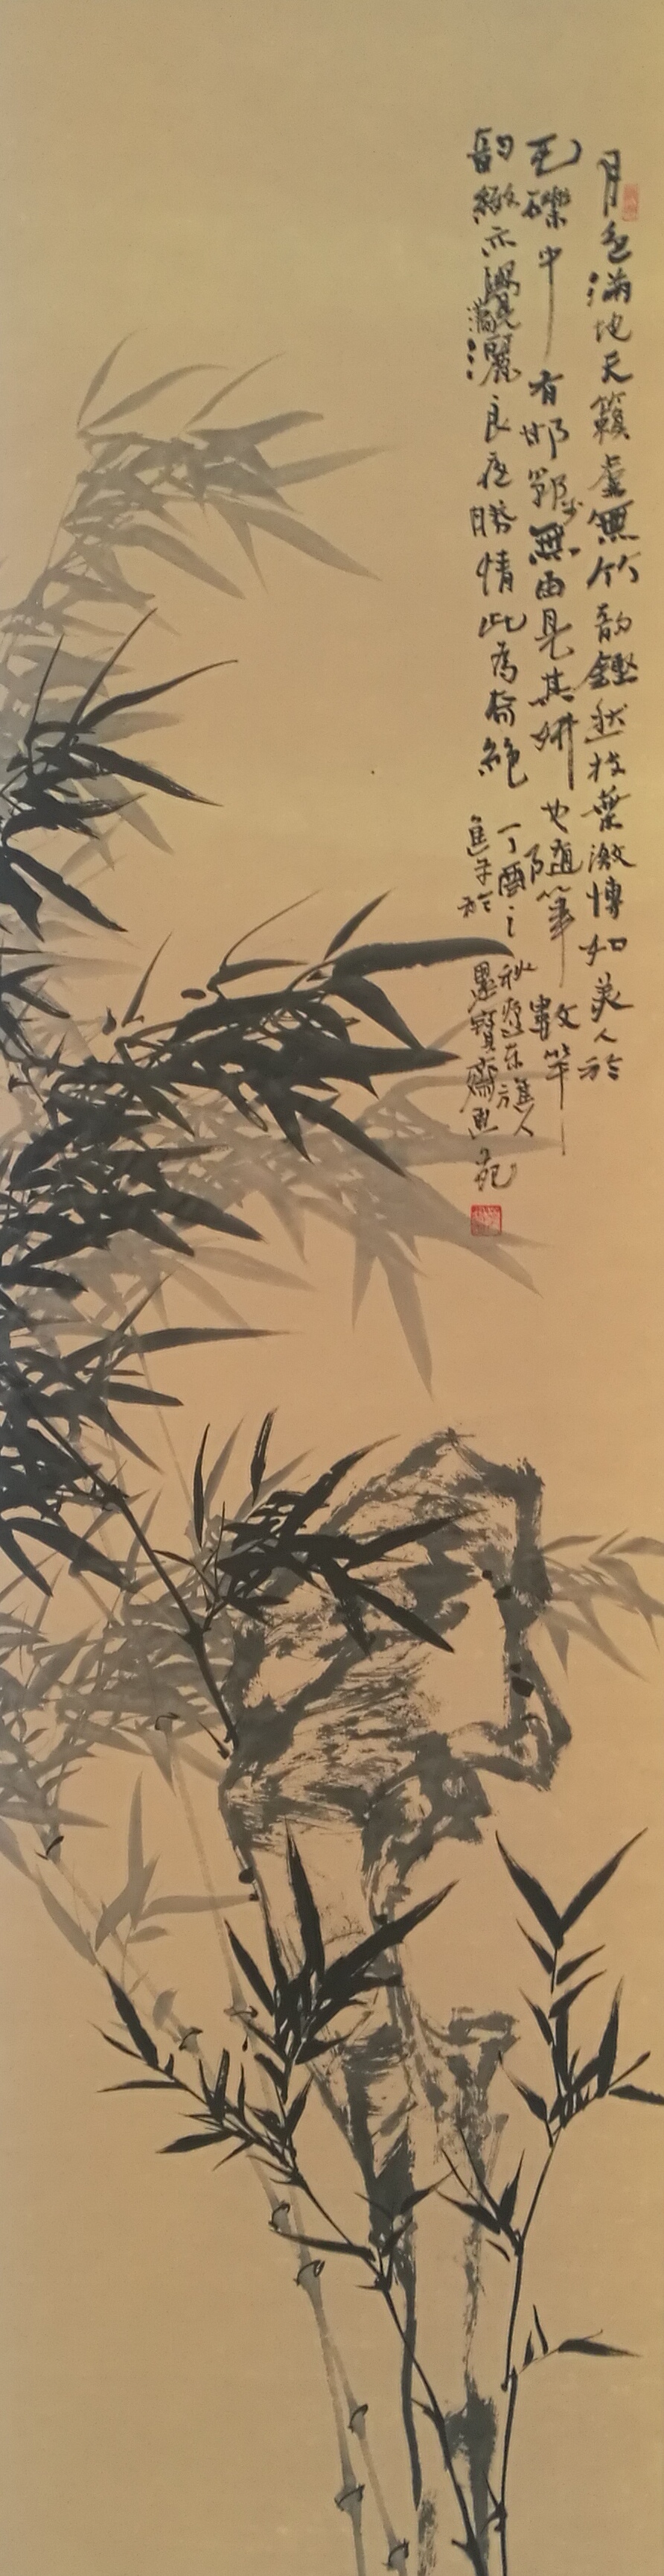 月色滿地天籟虛無竹韵鏗然枝葉激博如美人於
瓦礫中有邯鄲步無由見其妍也隨筆數竿
韵緻亦覺瀟灑良夜勝情此為奇絕
丁酉之秋遼東進人
焦子於墨寶齋